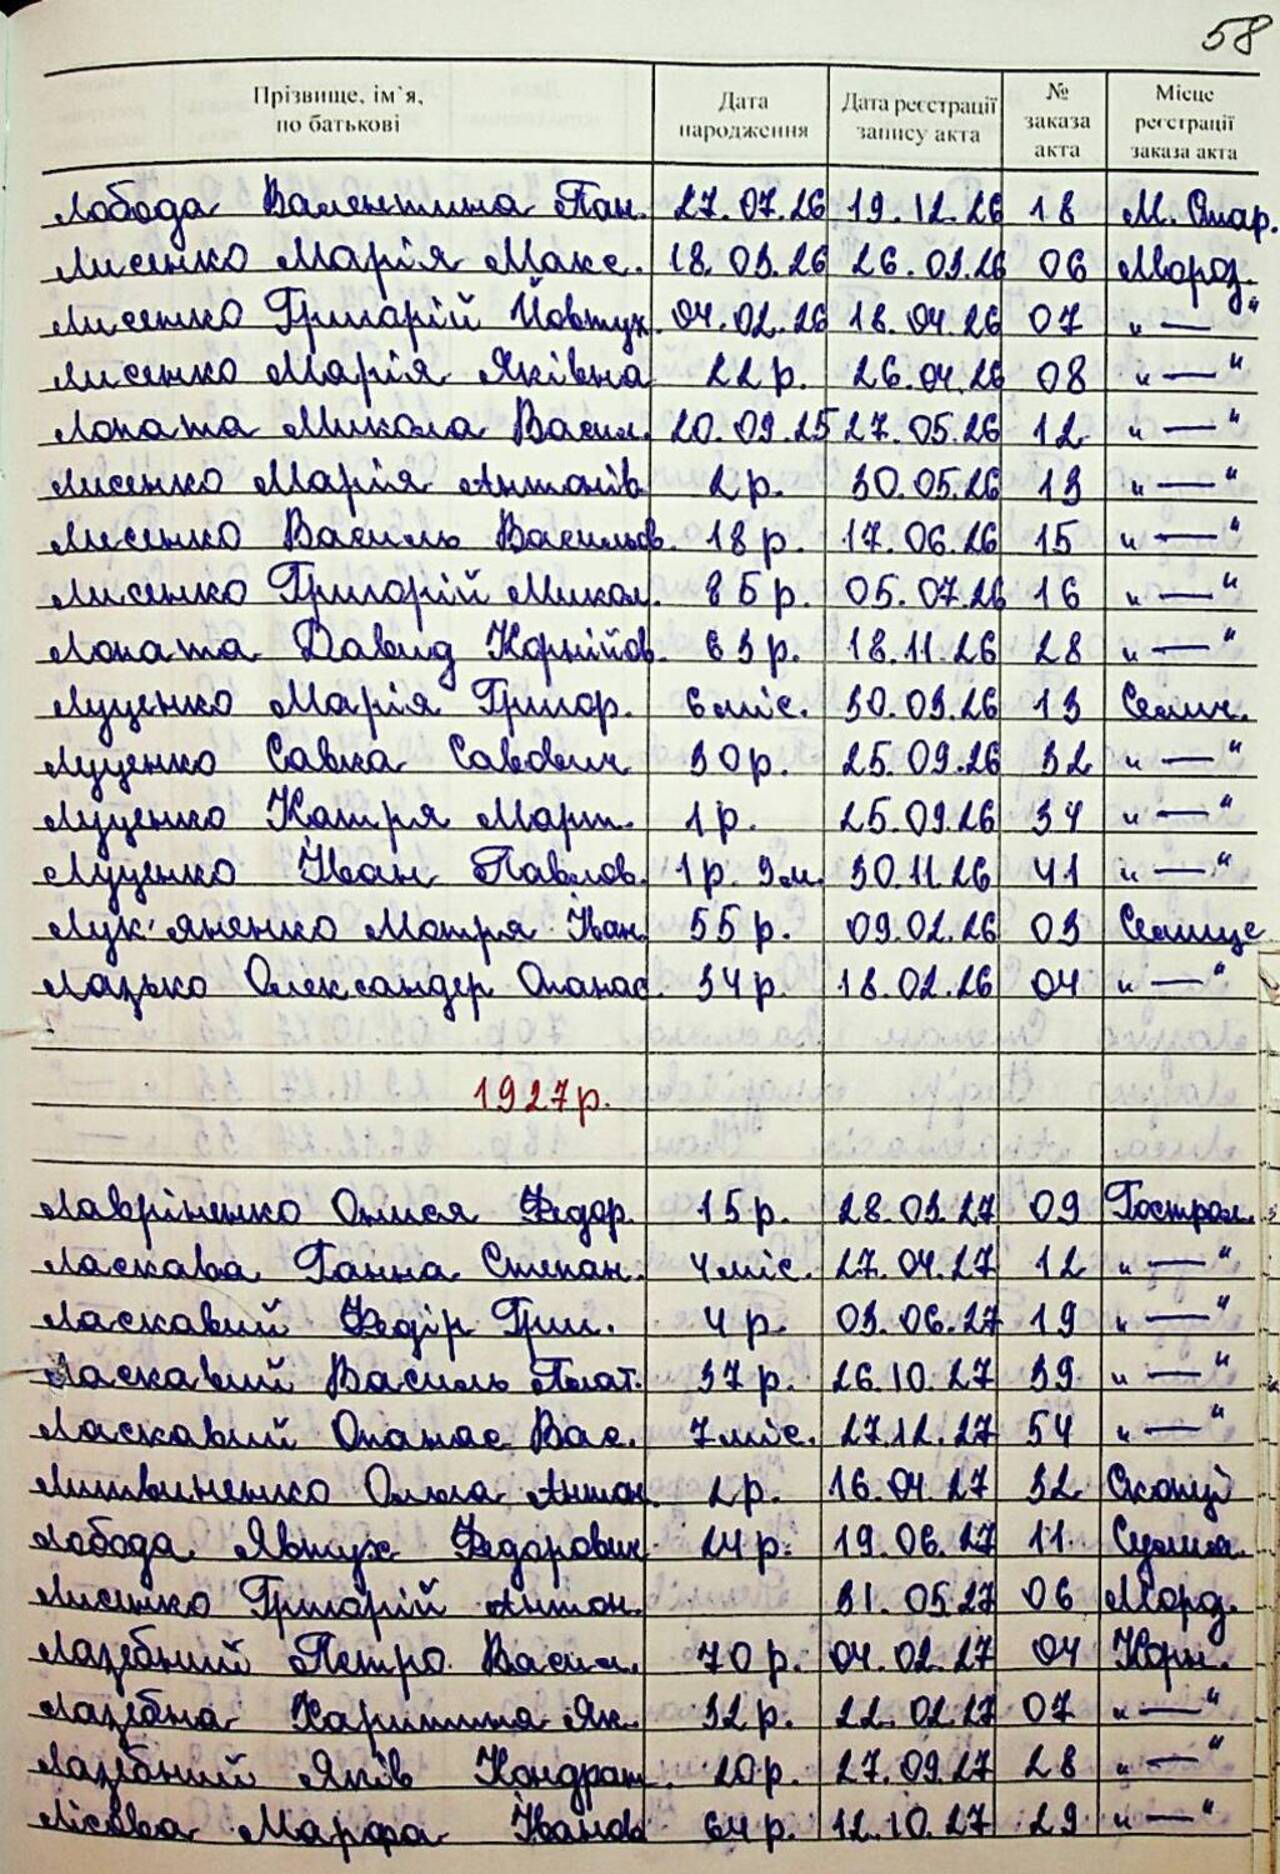 58
Прізвище, ім'я, по батькові Дата народження Дата реєстрації запису акта № заказа акта Місце реєстрації заказа акта
Лобода Валентина Пан. 27.07.26 19.12.26 18 М. Стар.
Лисенко Марія Макс. 18.03.26 26.03.26 06 Мороз.
Лисенко Григорій Йовтух. 04.02.26 18.04.26 07 "—"
Лисенко Марія Яківна 22р. 26.04.26 08 "—"
Лопата Микола Васил. 20.09.25 27.05.26 12 "—"
Лисенко Марія Антонів. 2р. 30.05.26 13 "—"
Лисенко Василь Васильов. 18р. 17.06.26 15 "—"
Лисенко Григорій Микол. 85р. 05.07.26 16 "—"
Лопата Давид Корнійов. 63р. 18.11.26 28 "—"
Луценко Марія Григор. 6міс. 30.03.26 13 Селич.
Луценко Савка Савович 30р. 25.09.26 32 "—"
Луценко Катря Март. 1р. 25.09.26 34 "—"
Луценко Іван Павлов. 1р. 9м. 30.11.26 41 "—"
Лук'яненко Мотря Іван. 55р. 09.02.26 03 Селище
Лазько Олександер Опанас. 34р. 18.02.26 04 "—"
1927р.
Лавріненко Онися Федор. 15р. 28.03.27 09 Гострол.
Ласкава Ганна Степан. 4міс. 27.04.27 12 "—"
Ласкавий Федір Григ. 4р. 03.06.27 19 "—"
Ласкавий Василь Плат. 37р. 26.10.27 39 "—"
Ласкавий Опанас Вас. 7міс. 27.12.27 54 "—"
Литвиненко Ольга Антон. 2р. 16.04.27 32
Лобода Явтух Федорович 24р. 19.06.27 11
Лисенко Григорій Антон. 31.05.27 06 Мороз.
Лазебний Петро Васил. 70р. 04.02.27 04 Корн.
Лазебна Харитина Як. 32р. 22.02.27 07 "—"
Лазебний Яків Кондрат. 20р. 27.09.27 28 "—"
Лісова Марфа Іванов. 64р. 12.10.27 29 "—"